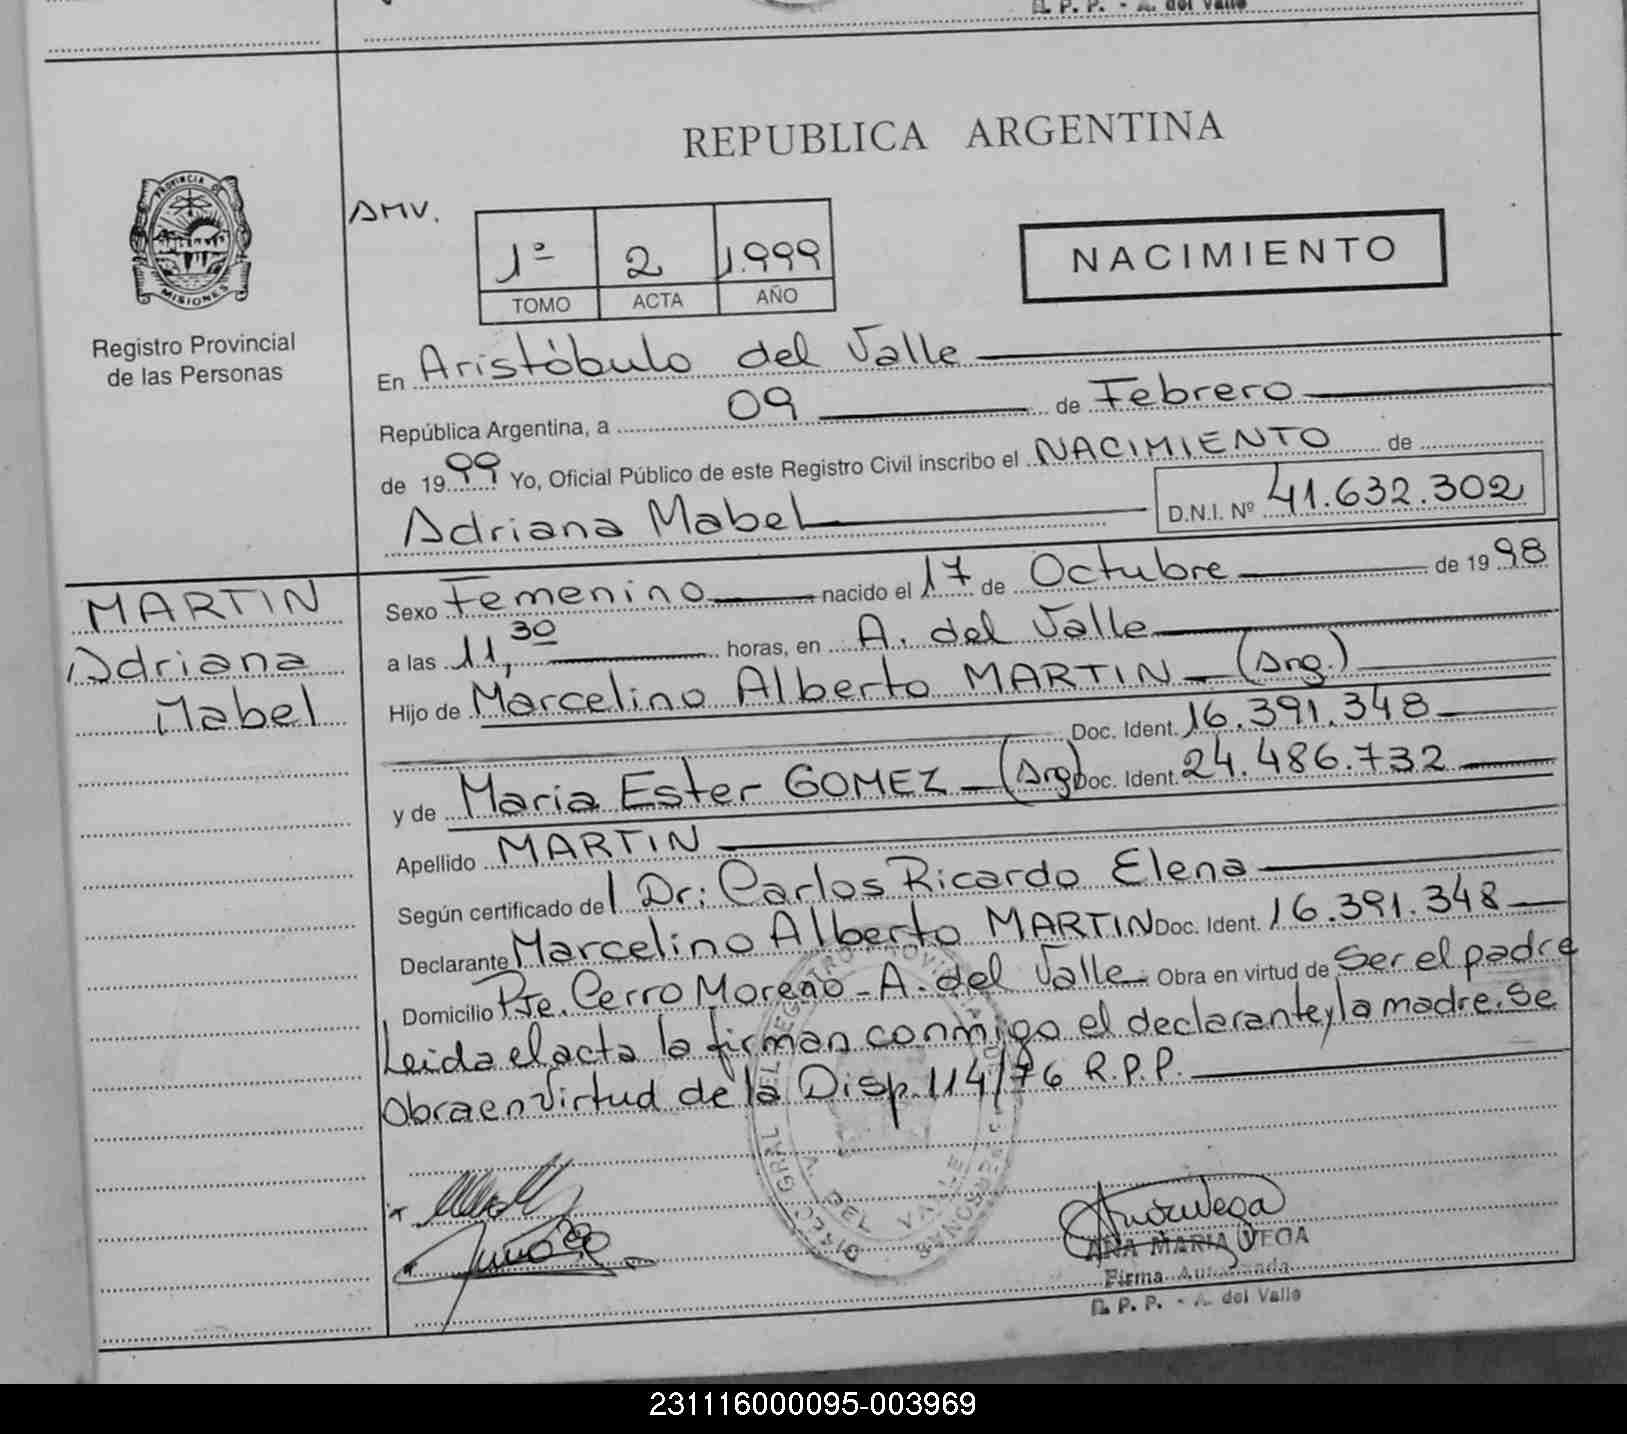 D. P. P. - A. del Valle
REPUBLICA ARGENTINA
PROVINCIA DE
MISIONES
Registro Provincial
de las Personas
AMV.
1º 2 1.999
TOMO ACTA AÑO
NACIMIENTO
En Aristóbulo del Valle
República Argentina, a 09 de Febrero
de 1999 Yo, Oficial Público de este Registro Civil inscribo el NACIMIENTO de
Adriana Mabel D.N.I. Nº 41.632.302
MARTIN
Adriana
Mabel
Sexo Femenino nacido el 17 de Octubre de 1998
a las 11,30 horas, en A. del Valle
Hijo de Marcelino Alberto MARTIN - (Arg.)
Doc. Ident. 16.391.348
y de Maria Ester GOMEZ - (Arg) Doc. Ident. 24.486.732
Apellido MARTIN
Según certificado del Dr: Carlos Ricardo Elena
Declarante Marcelino Alberto MARTIN Doc. Ident. 16.391.348
Domicilio Pje. Cerro Moreno - A. del Valle Obra en virtud de Ser el padre
Leida el acta la firman conmigo el declarante y la madre. Se
Obra en virtud de la Disp. 114/76 R.P.P.
DIREC. GRAL. DEL REGISTRO PROVINCIAL PERSONAS
A. DEL VALLE
ANA MARIA VEGA
Firma Autorizada
D. P. P. - A. del Valle
231116000095-003969